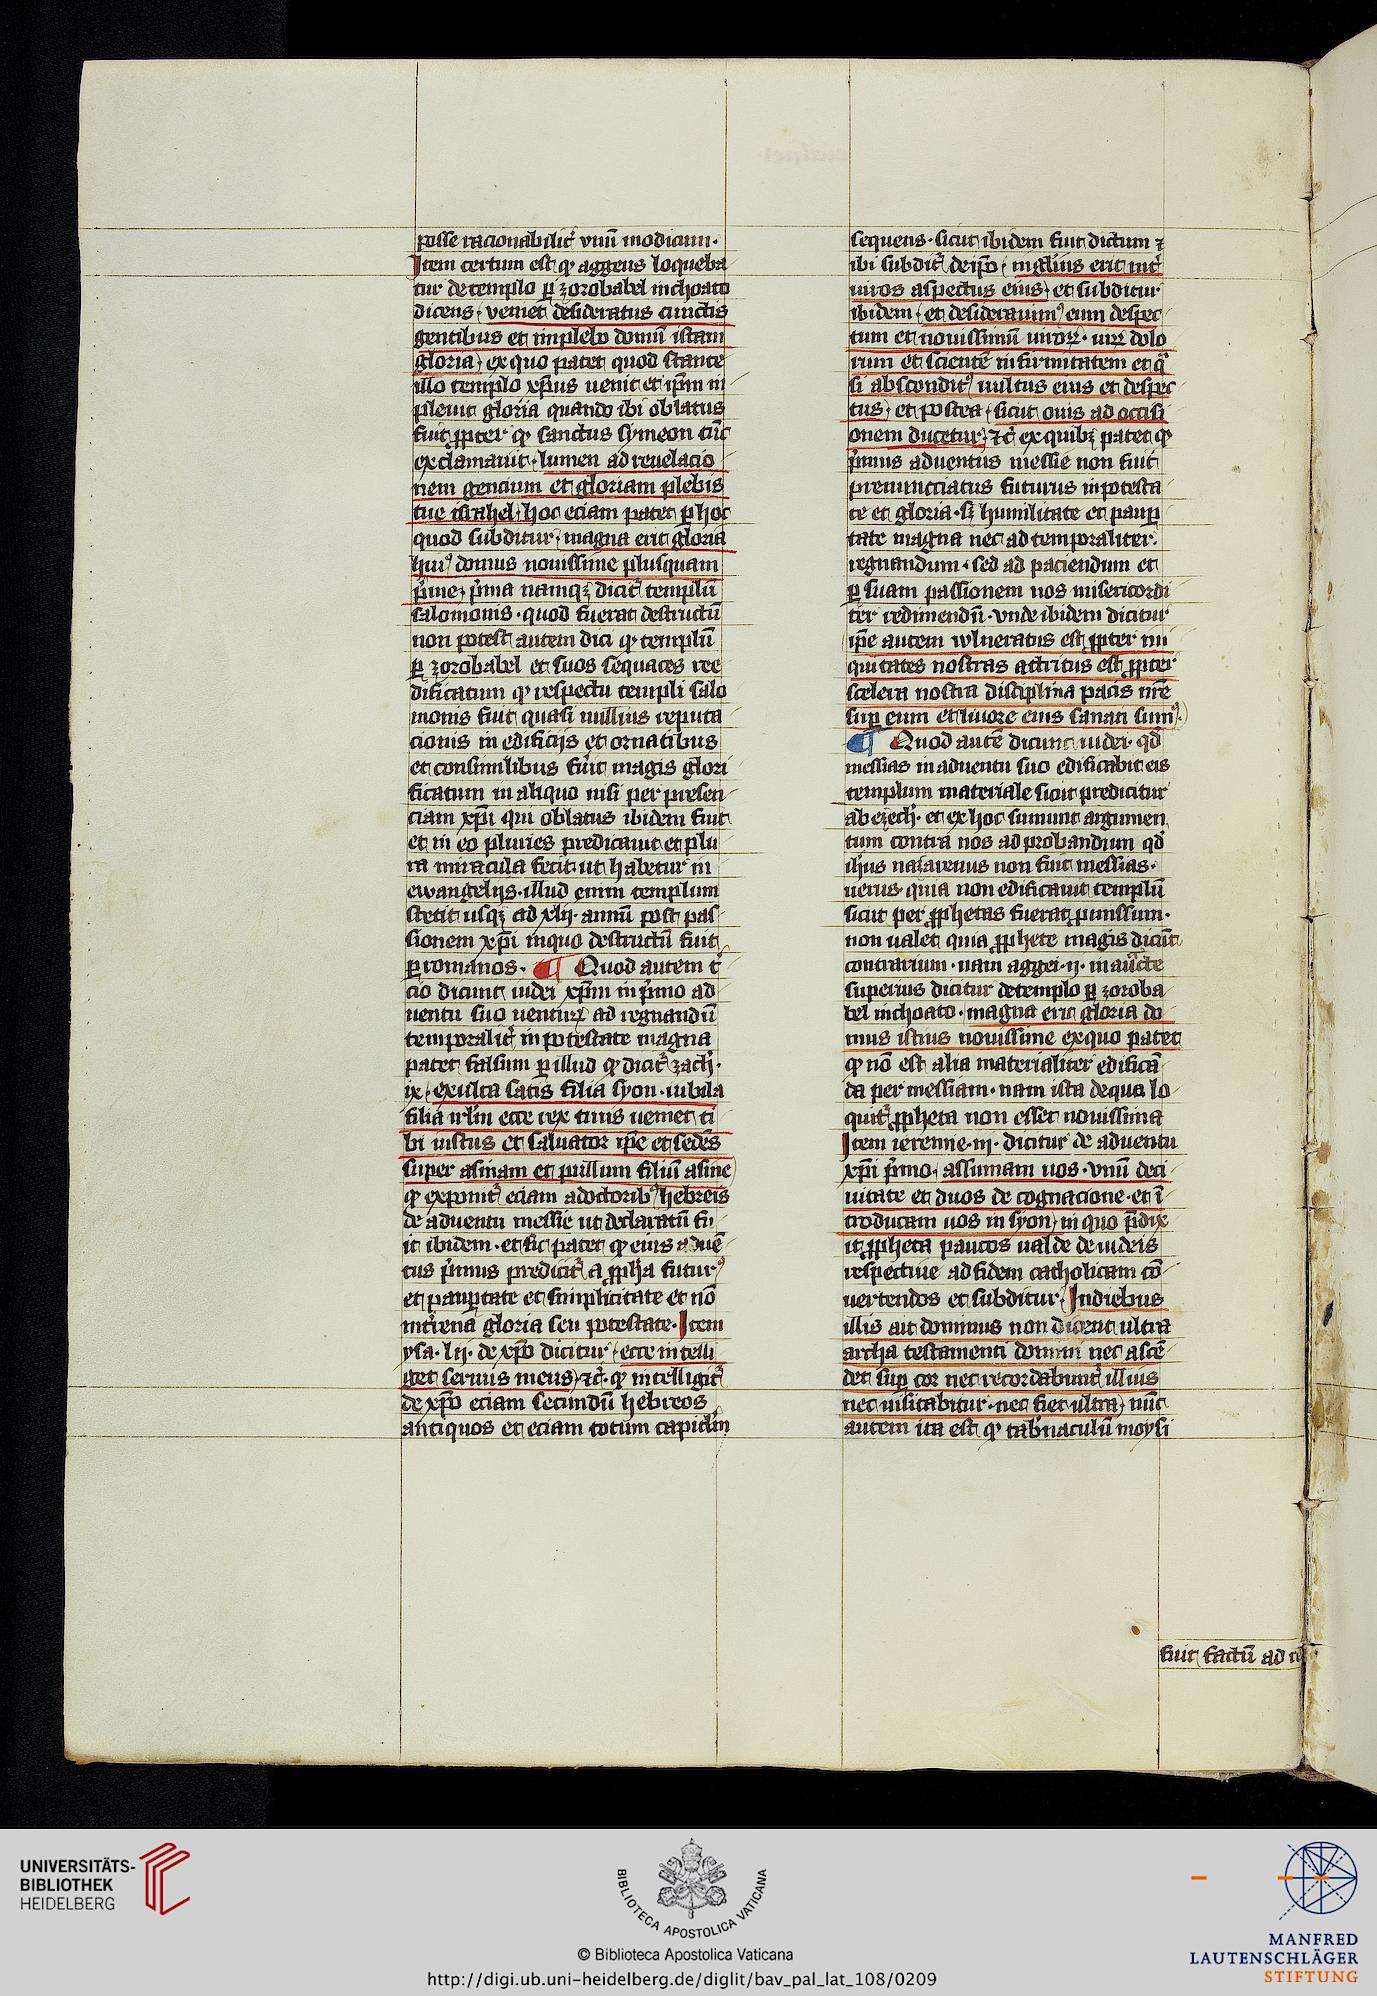 posse racionabilit᷑ vnū modicum·
Item certum est ꝙ aggeus loqueba
tur de templo ꝑ zorobabel inchoato
dicens· veniet desideratus cunctis
gentibus et implebo domū istam
gloria· ex quo patet quod stante
illo templo xp̄us uenit et ip̄m im
pleuit gloria quando ibi oblatus
fuit ꝓpter ꝙ sanctus symeon tūc
exclamauit· lumen ad reuelacio
nem gencium et gloriam plebis
tue israhel· hoc eciam patet ꝑ hoc
quod subditur· magna erit gloria
huiꝰ domus nouissime plusquam
p̄me· p̄ma namqꝫ dicit᷑ templū
salomonis· quod fuerat destructū
non potest autem dici ꝙ templū
ꝑ zorobabel et suos sequaces ree
dificatum ꝙ respectu templi salo
monis fuit quasi nullius reputa
cionis in edificijs et ornatibus
et consimilibus fu̅it magis glori
ficatum in aliquo nisi per presen
ciam xp̄i qui oblatus ibidem fuit
et in eo pluries predicauit et plu
ra miracula fecit ut habetur in
ewangelijs· illud enim templum
stetit usqꝫ ad xlij· annū post pas
sionem xp̄i in quo destructū fuit
ꝑ romanos· ¶ Quod autem t᷑
cio dicunt iudei xp̄m in p̄mo ad
uentu suo uenturꝝ ad regnandū
temporalit᷑ in potestate magna
patet falsum ꝑ illud ꝙ dicit᷑ zach̄·
ix· exulta satis filia syon· iubila
filia irl̄m ecce rex tuus ueniet ti
bi iustus et saluator ip̄e et sedēs
super asinam et pullum filiū asine
ꝙ exponit᷑ eciam a doctoribꝰ hebreis
de aduentu messie ut declaratū fu
it ibidem· et sic patet ꝙ eius aduē
tus p̄mus predicit᷑ a ꝓph̄a futurꝰ
et pauꝑtate et simplicitate et nō
in t᷑rena gloria seu potestate· Item
ysa· lij· de xp̄o dicitur· ecce intelli
get seruus meus· ⁊c̄· ꝙ intelligit᷑
de xp̄o eciam secundū hebreos
antiquos et eciam totum capitl̄m
sequens· sicut ibidem fuit dictum ⁊
ibi subdit᷑ de ip̄o· inglīus erit int᷑
uiros aspectus eius· et subditur
ibidem· et desiderauimꝰ eum despec
tum et nouissimū uirorꝝ· uirꝝ dolo
rum et scientē infirmitatem et q̄
si absconditꝰ uultus eius et despec
tus· et postea· sicut ouis ad occisi
onem ducetur· ⁊c̄ ex quibꝫ patet ꝙ
p̄mus aduentus messie non fuit
prenuncciatus futurus in potesta
te et gloria· sꝫ humilitate et pauꝑ
tate magna nec ad temporaliter·
regnandum· sed ad paciendum et
ꝑ suam passionem nos misericordi
ter redimendū· vnde ibidem dicitur
ip̄e autem wlneratus est ꝓpter ini
quitates nostras attritus est ꝓpter
scelera nostra disciplina pacis nr̄e
suꝑ eum et liuore eius sanati sumꝰ·
¶ Quod autē dicunt iudei· qd̄
messias in aduentu suo edificabit eis
templum materiale sicut predicitur
ab ezech̄· et ex hoc sumunt argumen
tum contra nos ad probandum qd̄
ih̄us nazarenus non fuit messias·
uerus· quia non edificauit templū
sicut per ꝓphetas fuerat ꝓmissum·
non ualet quia ꝓphete magis dicūt
contrarium· nam aggei· ij· in auc̄te
superius dicitur de templo ꝑ zoroba
bel inchoato· magna erit gloria do
mus istius nouissime ex quo patet
ꝙ nō est alia materialiter edificā
da per messiam· nam ista de qua lo
quit᷑ ꝓpheta non esset nouissima
Item ieremie· iij· dicitur de aduentu
xp̄i p̄mo· assumam uos· vnū de ci
uitate et duos de cognacione· et ī
troducam uos in syon· in quo p̄dix
it ꝓpheta paucos ualde de iudeis
respectiue ad fidem catholicam cō
uertendos et subditur· In diebus
illis ait dominus non dicent ultra
archa testamenti domini nec ascē
det suꝑ cor nec recordabunt᷑ illius
nec uisitabitur· nec fiet ultra· nūc
autem ita est ꝙ tab̄naculū moysi
fuit factū ad
UNIVERSITÄTS-
BIBLIOTHEK
HEIDELBERG
BIBLIOTECA APOSTOLICA VATICANA
© Biblioteca Apostolica Vaticana
http://digi.ub.uni-heidelberg.de/diglit/bav_pal_lat_108/0209
MANFRED
LAUTENSCHLÄGER
STIFTUNG